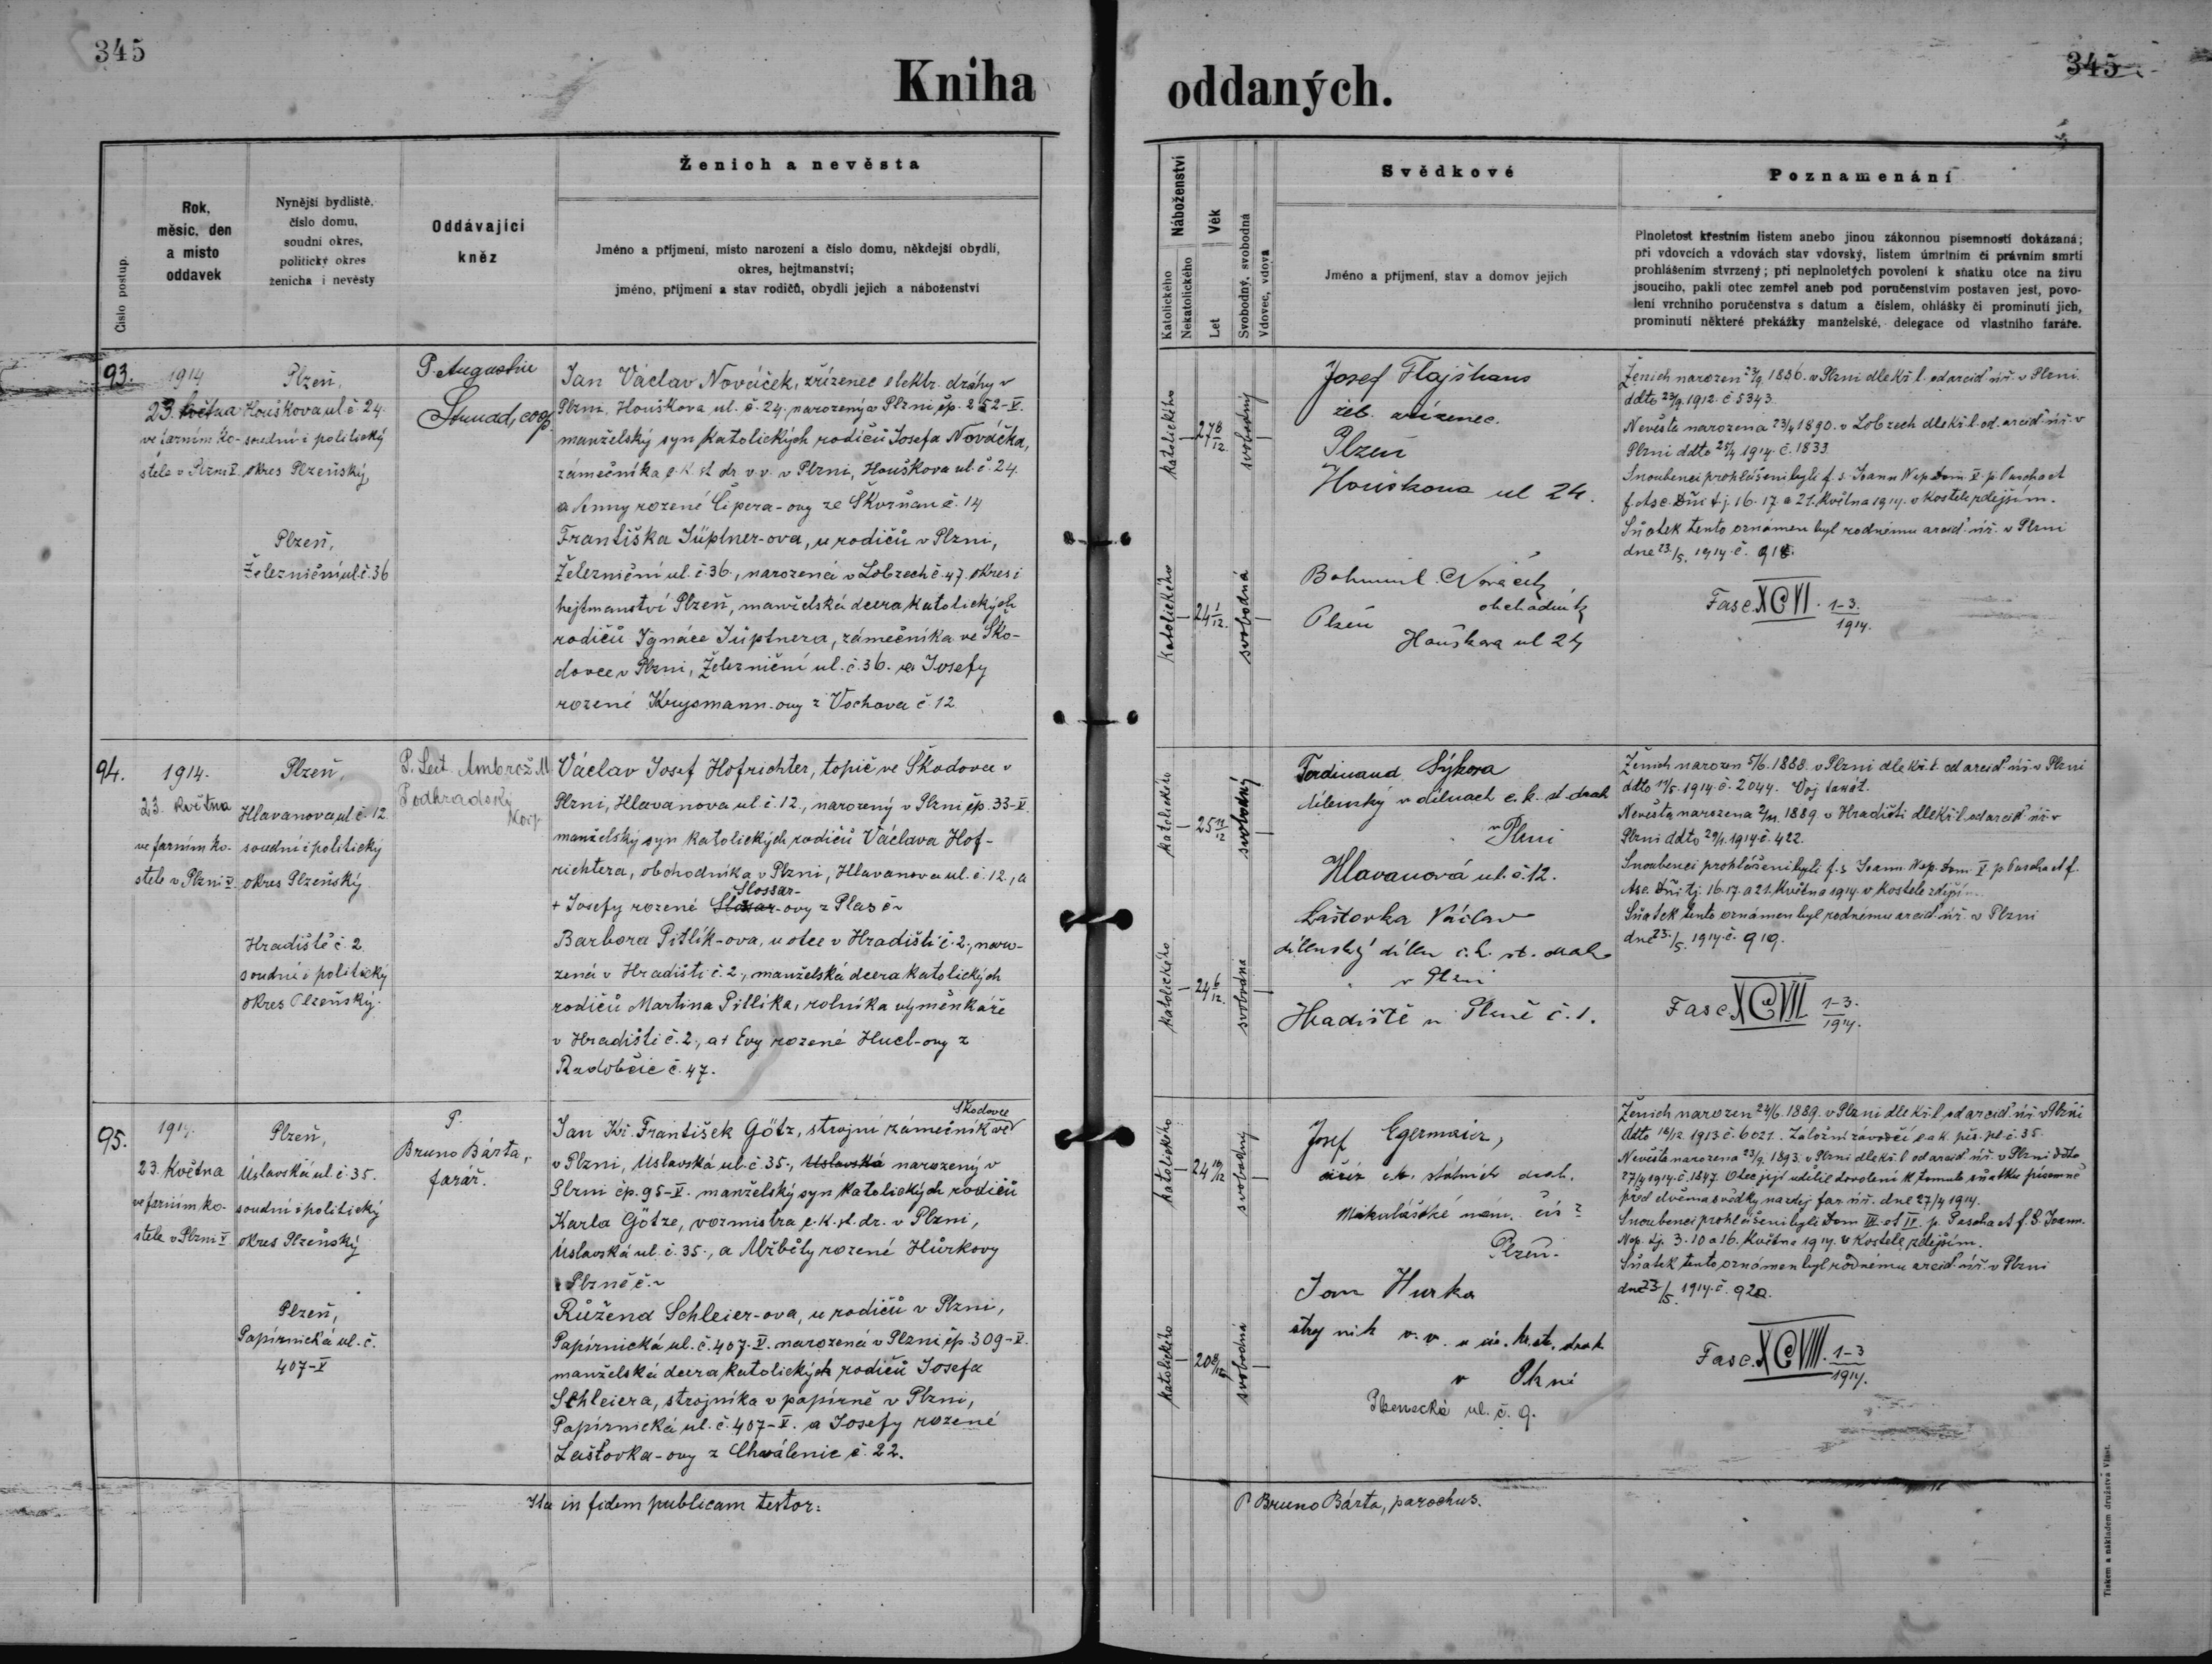 345
345
Kniha oddaných.
Číslo postup.
Rok,
měsíc, den
a místo
oddavek
Nynější bydliště,
číslo domu,
soudní okres,
politický okres
ženicha i nevěsty
Oddávající
kněz
Ženich a nevěsta
Jméno a příjmení, místo narození a číslo domu, někdejší obydlí,
okres, hejtmanství;
jméno, příjmení a stav rodičů, obydlí jejich a náboženství
Náboženství
Katolického
Nekatolického
Věk
Let
Svobodný, svobodná
Vdovec, vdova
Svědkové
Jméno a příjmení, stav a domov jejich
Poznamenání
Plnoletost křestním listem anebo jinou zákonnou písemností dokázaná;
při vdovcích a vdovách stav vdovský, listem úmrtním či právním smrti
prohlášením stvrzený; při neplnoletých povolení k sňatku otce na živu
jsoucího, pakli otec zemřel aneb pod poručenstvím postaven jest, povo-
lení vrchního poručenstva s datum a číslem, ohlášky či prominutí jich,
prominutí některé překážky manželské, delegace od vlastního faráře.
93.
1914
23. května
ve farním ko-
stele v Plzni V.
Plzeň,
Houškova ul. č. 24.
soudní i politický
okres Plzeňský,
Plzeň,
Železniční ul. č. 36
P. Augustin
coop.
Jan Václav Nováček, zřízenec elektr. dráhy v
Plzni, Houškova ul. č. 24. narozený v Plzni čp. 252-V.
manželský syn katolických rodičů Josefa Nováčka,
zámečníka c. k. st. dr. v. v. v Plzni, Houškova ul. č. 24.
a Anny rozené Čipera-ovy ze Skvrňan č. 14
Františka Jüptner-ova, u rodičů v Plzni,
Železniční ul. č. 36., narozená v Lobzech č. 47. okres i
hejtmanství Plzeň, manželská dcera katolických
rodičů Ignáce Jüptnera, zámečníka ve Ško-
dovce v Plzni, Železniční ul. č. 36. a Josefy
rozené Krysmann-ovy z Vochova č. 12
katolického
27 8/12.
svobodný
katolického
24 1/12.
svobodná
Josef Flajšhans
žel. zřízenec.
Plzeň
Houškova ul 24.
Bohumil Nováček
obchodník
Plzeň
Houškova ul 24
Ženich narozen 23/9. 1886. v Plzni dle kř. l. od arcid. úř. v Plzni.
ddto 23/9. 1912. č. 5343.
Nevěsta narozena 23/4 1890. v Lobzech dle kř. l. od. arcid. úř. v
Plzni ddto 25/4 1914. č. 1833.
Snoubenci prohlášeni byli f. s. Joann Nep. Dom. V. p. Pascha et
f. Asc. Dñi t. j. 16. 17. a 21. května 1914. v kostele zdejším.
Sňatek tento oznámen byl rodnému arcid. úř. v Plzni
dne 23./5. 1914. č. 918.
Fasc. XCVI. 1-3. 1914.
94.
1914.
23. května
ve farním ko-
stele v Plzni V.
Plzeň,
Hlavanova ul. č. 12.
soudní i politický
okres Plzeňský
Hradiště č. 2
soudní i politický
okres Plzeňský.
P. Lect. Ambrož M.
Podhradský
Václav Josef Hofrichter, topič ve Škodovce v
Plzni, Hlavanova ul. č. 12., narozený v Plzni čp. 33-V.
manželský syn katolických rodičů Václava Hof-
richtera, obchodníka v Plzni, Hlavanova ul. č. 12., a
Slossar-
+ Josefy rozené Slosar-ovy z Plas č ~
Barbora Pitlík-ova, u otce v Hradišti č. 2, naro-
zená v Hradišti č. 2., manželská dcera katolických
rodičů Martina Pitlíka, rolníka výměnkáře
v Hradišti č. 2., a + Evy rozené Hucl-ovy z
Radobčic č. 47.
katolického
25 11/12
svobodný
katolického
24 6/12.
svobodná
Ferdinand Sýkora
dílenský v dílnach c. k. st. drah
v Plzni
Hlavanová ul. č. 12.
Laštovka Václav
dílenský dílen c. k. st. drah
v Plzni
Hradiště u Plzně č. 1.
Ženich narozen 5/6. 1888. v Plzni dle kř. l. od arcid. úř. v Plzni
ddto 11/5. 1914. č. 2044.
Nevěsta narozena 2/11. 1889. v Hradišti dle kř. l. od arcid. úř. v
Plzni ddto 29/1. 1914 č. 422.
Snoubenci prohlášeni byli f. s. Joann. Nep. Dom. V. p. Pascha et f.
Asc. Dñi tj. 16. 17. a 21. května 1914. v kostele zdejším.
Sňatek tento oznámen byl rodnému arcid. úř. v Plzni
dne 23./5. 1914. č. 919.
Fasc. XCVII 1-3. 1914.
95.
1914.
23. května
ve farním ko-
stele v Plzni V.
Plzeň,
Úslavská ul. č. 35.
soudní i politický
okres Plzeňský
Plzeň,
Papírnická ul. č.
407-V
P.
Bruno Bárta,
farář.
Škodovce
Jan Kř. František Götz, strojní zámečník ve
v Plzni, Úslavská ul. č. 35., Úslavská narozený v
Plzni čp. 95-V. manželský syn katolických rodičů
Karla Götze, vozmistra c. k. st. dr. v Plzni,
Úslavská ul. č. 35., a Alžběty rozené Hůrkovy
z Plzně č. ~
Růžena Schleier-ova, u rodičů v Plzni,
Papírnická ul. č. 407-V. narozená v Plzni čp. 309-V.
manželská dcera katolických rodičů Josefa
Schleiera, strojníka v papírně v Plzni,
Papírnická ul. č. 407-V. a Josefy rozené
Laštovka-ovy z Chválenic č. 22.
katolického
24 10/12
svobodný
katolického
20 8/12
svobodná
Josef Egermaier,
c. k. státních drah.
Mikulášské nám.
Plzeň.
Jan Hurka
strojník v. v. u
v Plzni
ul. č. 9.
Ženich narozen 24/6. 1889. v Plzni dle kř. l. od arcid. úř. v Plzni
ddto 12/12. 1913. č. 6021. Záložní závodčí c. a k. pěš. pl. č. 35.
Nevěsta narozena 23/9. 1893. v Plzni dle kř. l. od arcid. úř. v Plzni ddto
27/4 1914. č. 1847. Otec její udělil dovolení k tomuto sňatku písemně
před dvěma svědky na zdej. far. úř. dne 27/4 1914.
Snoubenci prohlášeni byli Dom III. et IV. p. Pascha et f. S. Joann.
Nep. tj. 3. 10 a 16. května 1914. v kostele zdejším.
Sňatek tento oznámen byl rodnému arcid. úř. v Plzni
dne 23./5. 1914. č. 920.
Fasc. XCVIII. 1-3 1914.
Ita in fidem publicam testor:
P. Bruno Bárta, parochus.
Tiskem a nákladem družstva Vlast.